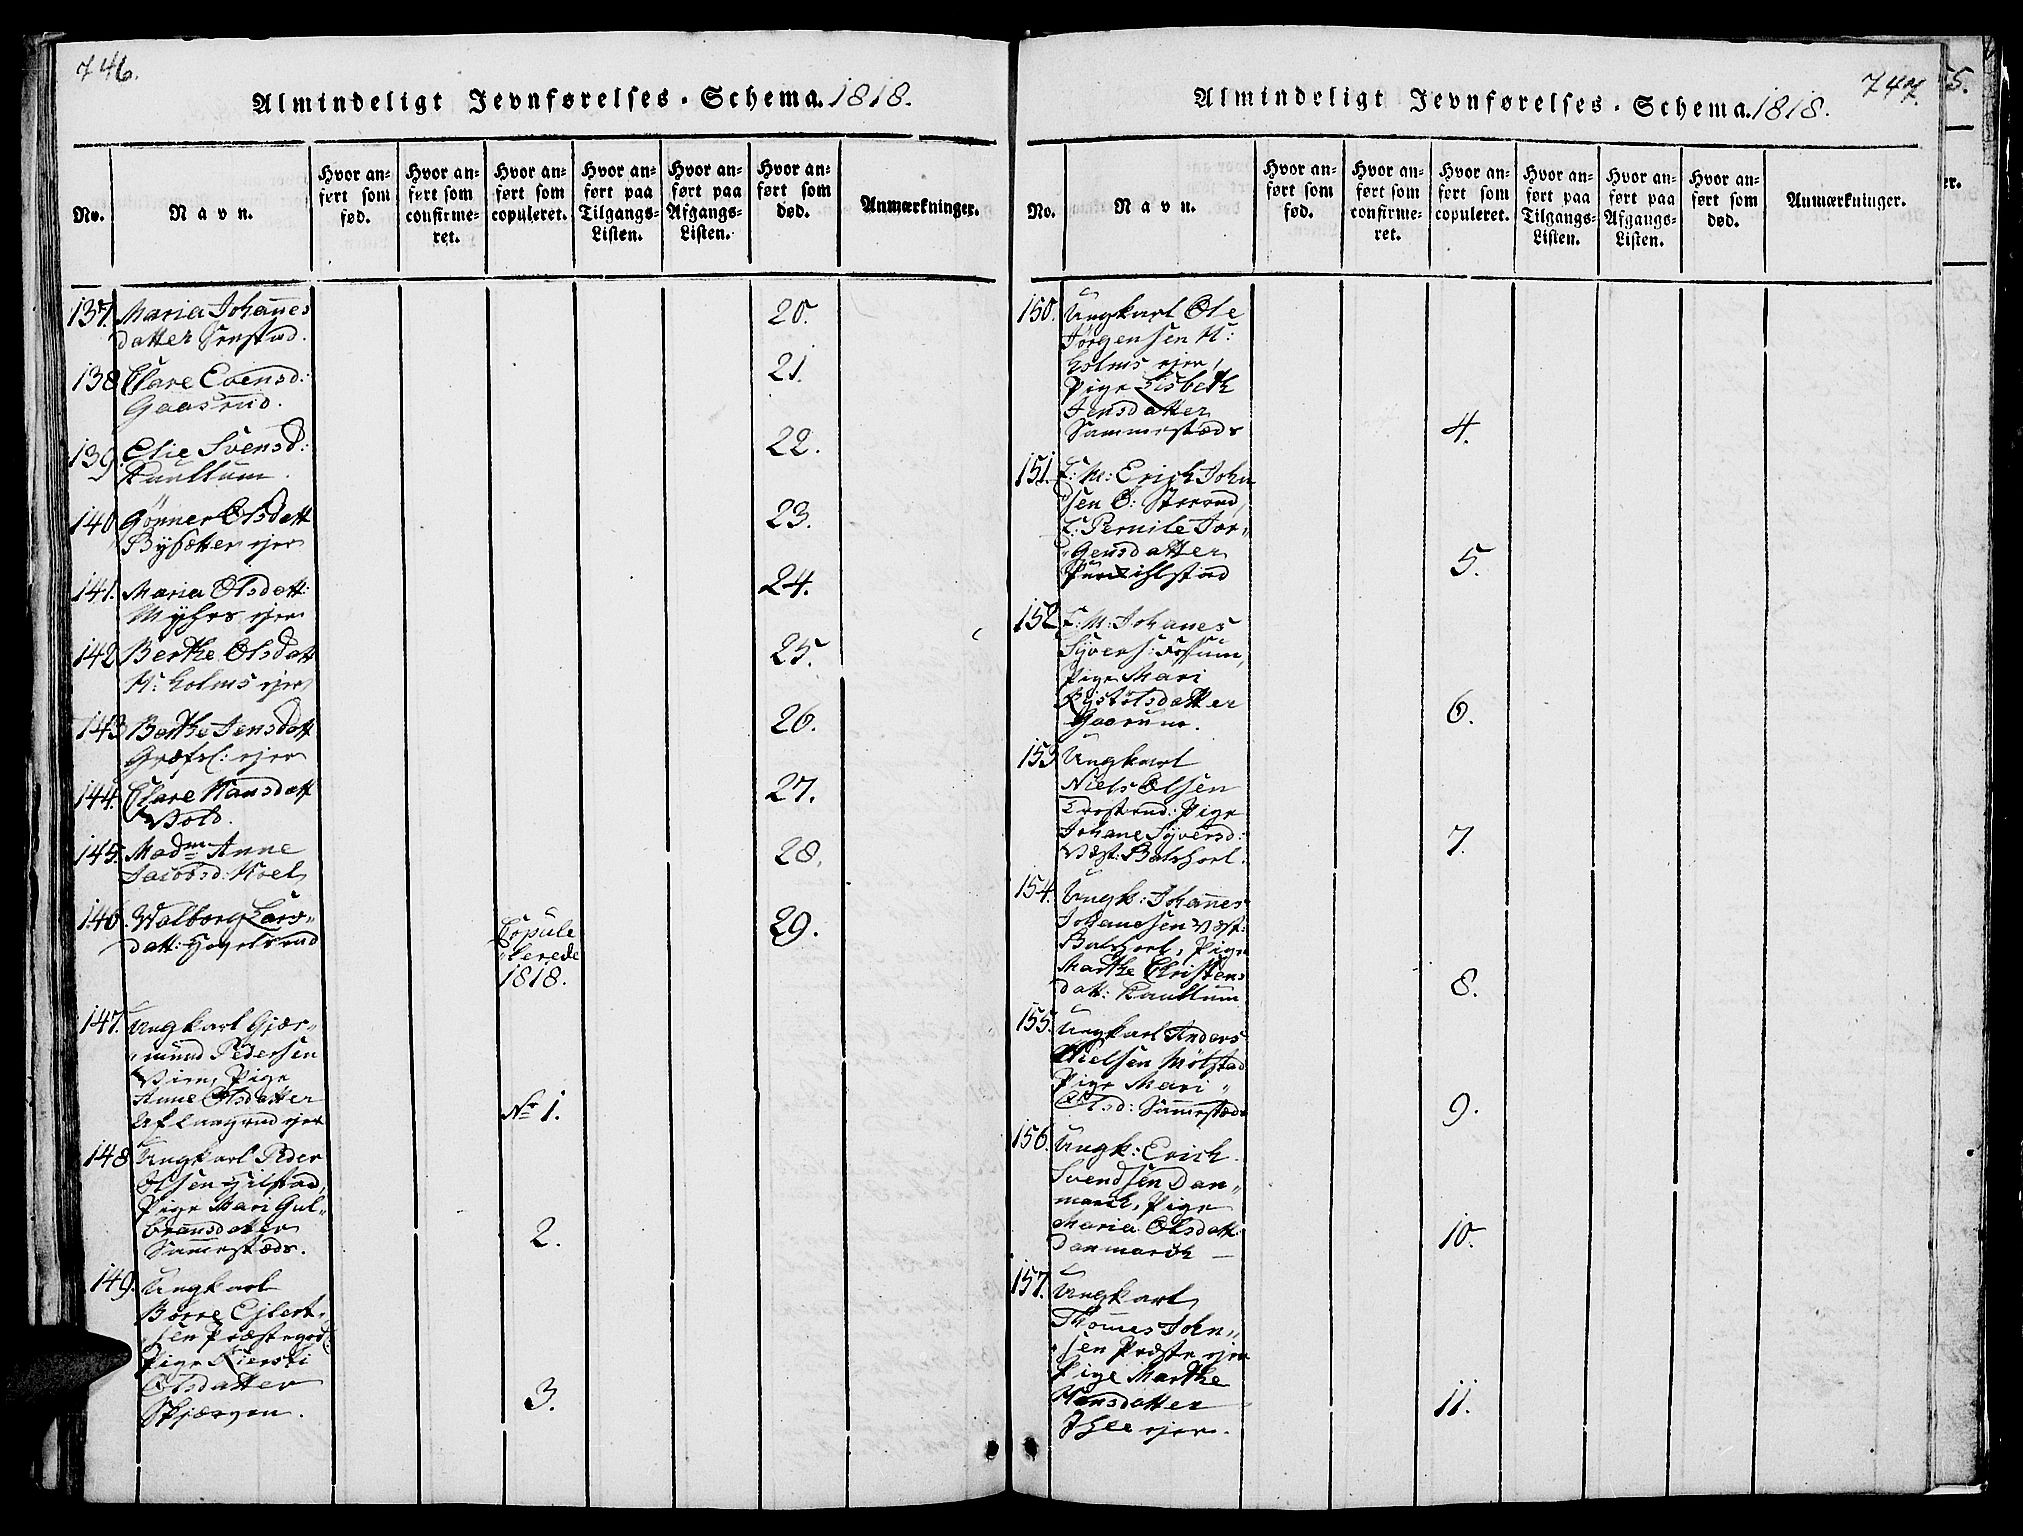 746.
Almindeligt Jevnførelses-Schema. 1818.
No. Navn. Hvor anført som fød. Hvor anført som confirmeret. Hvor anført som copuleret. Hvor anført paa Tilgangs-Listen. Hvor anført paa Afgangs-Listen. Hvor anført som død. Anmærkninger.
137. Maria Johannes
datter Senstad. 20.
138 Clare Evensd:
Gaasrud. 21.
139 Elie Svensd:
Kaultum. 22.
140 Gönner Olsdatt
Bysætter ejer 23.
141. Maria Olsdatt:
Myhrs ejer 24.
142 Berthe Olsdatt
H: Holms ejer 25.
143 Berthe Jensdatt
Græfsl: ejer 26.
144. Clare Hansdatt
Vold. 27.
145. Madm Anne
Jacobsd: Hoel 28.
146. Walborg Lars-
datt: Hovelsrud 29.
Copule
lerede
1818.
147. Ungkarl Gjær-
mund Pedersen
Viim, Pige
Anne Olsdatter
ejer No 1.
148 Ungkarl Peder
Olsen Hilstad,
Pige Mari Gul-
bransdatter
Sammestæds. 2.
149. Ungkarl
Börre Ejlert-
sen Præstegrd:
Pige Kiersti
Olsdatter
Skjærven. 3.
747.
Almindeligt Jevnførelses-Schema. 1818.
No. Navn. Hvor anført som fød. Hvor anført som confirmeret. Hvor anført som copuleret. Hvor anført paa Tilgangs-Listen. Hvor anført paa Afgangs-Listen. Hvor anført som død. Anmærkninger.
150. Ungkarl Ole
Jörgensen H:
Holms ejer,
Pige Lisbeth
Jensdatter
Sammestæds 4.
151. E: M: Erich John
sen Ö: Strand,
E: Pernile Jör-
gensdatter
5.
152 E: M: Johanes
Syvers: Fossum,
Pige Mari
Gaarum. 6.
153 Ungkarl
Niels Olsen
Pige
Johane Syversd:
Væst: Balchorl. 7.
154. Ungk: Johannes
Johansen Væst:
Balchorl, Pige
Marthe Christens
datt: Kaultum 8.
155. Ungkarl Anders
Nielsen Mölstad
Pige Mari
Olsd: Samestæds 9.
156. Ungk: Erich
Svendsen Dan-
march, Pige
Maria Olsdatt:
Danmarch 10.
157. Ungkarl
Thomes John-
sen Præste ejer
Pige Marthe
Hansdatter
Ihlee ejer. 11.